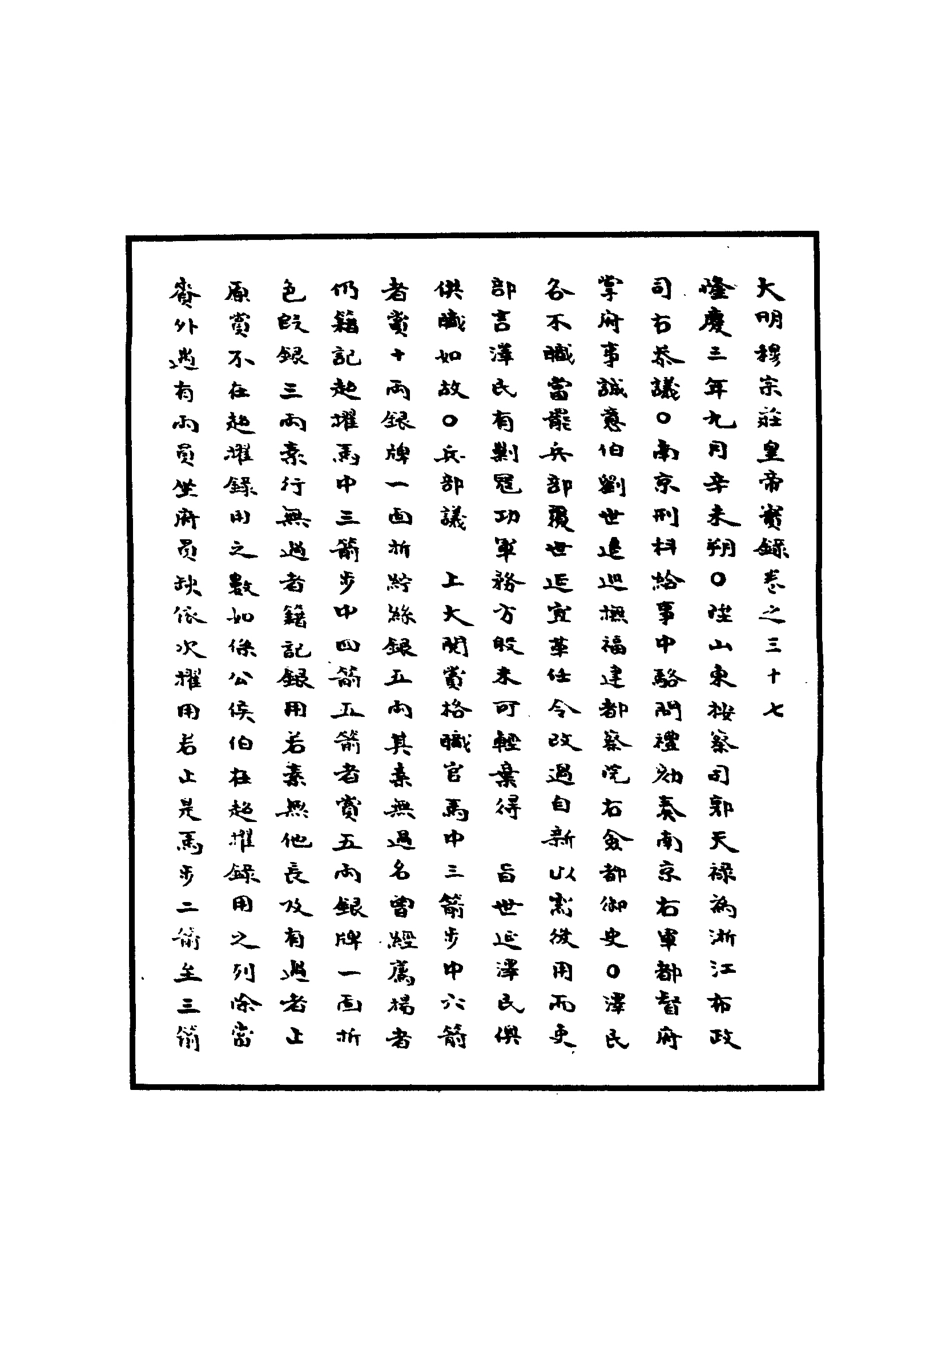 大明穆宗莊皇帝實錄卷之三十七
隆慶三年九月辛未朔○陞山東按察司郭天祿為浙江布政
司右叅議○南京刑科給事中駱問禮劾奏南京右軍都督府
掌府事誠意伯劉世延巡撫福建都察院右僉都御史○澤民
各不職當罷兵部覆世延宜革任令改過自新以需後用而吏
部言澤民有剿寇功軍務方殷未可輕棄得　旨世延澤民俱
供職如故○兵部議　上大閱賞格職官馬中三箭步中六箭
者賞十兩銀牌一面折紵絲銀五兩其素無過名曾經薦揚者
仍籍記超擢馬中三箭步中四箭五箭者賞五兩銀牌一面折
色段銀三兩素行無過者籍記錄用若素無他長及有過者止
原賞不在超擢錄用之數如係公侯伯在超擢錄用之列除當
賚外遇有兩員坐府員缺依次擢用若止是馬步二箭至三箭